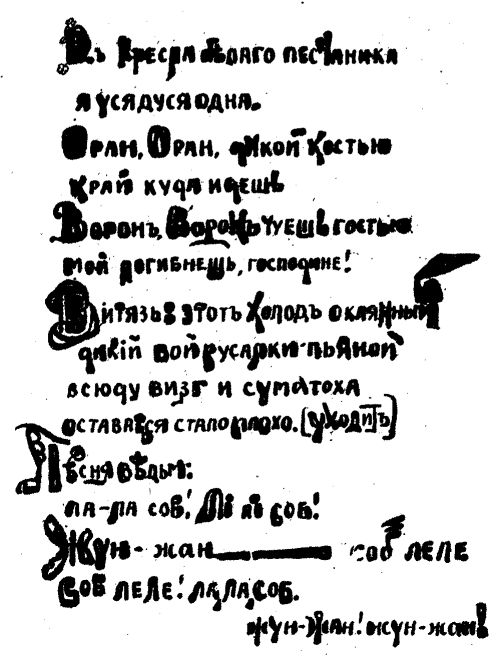 Въ кресла бѣлаго песчаника
я усядуся одна.
Оран, Оран, дикой костью
край куда идешь
Воронъ, Воронъ чуешь гостью
мой погибнешь, господине!
Витязь: этотъ холодъ окаянный
дикій вой русалки пьяной
всюду визг и суматоха
оставаться стало плохо. [уходитъ]
Пѣсня вѣдьм:
ла-ла соб! Ли ли соб!
Жун-жан соб леле
соб леле! ла, ла, соб.
жун-жан! жун-жан!